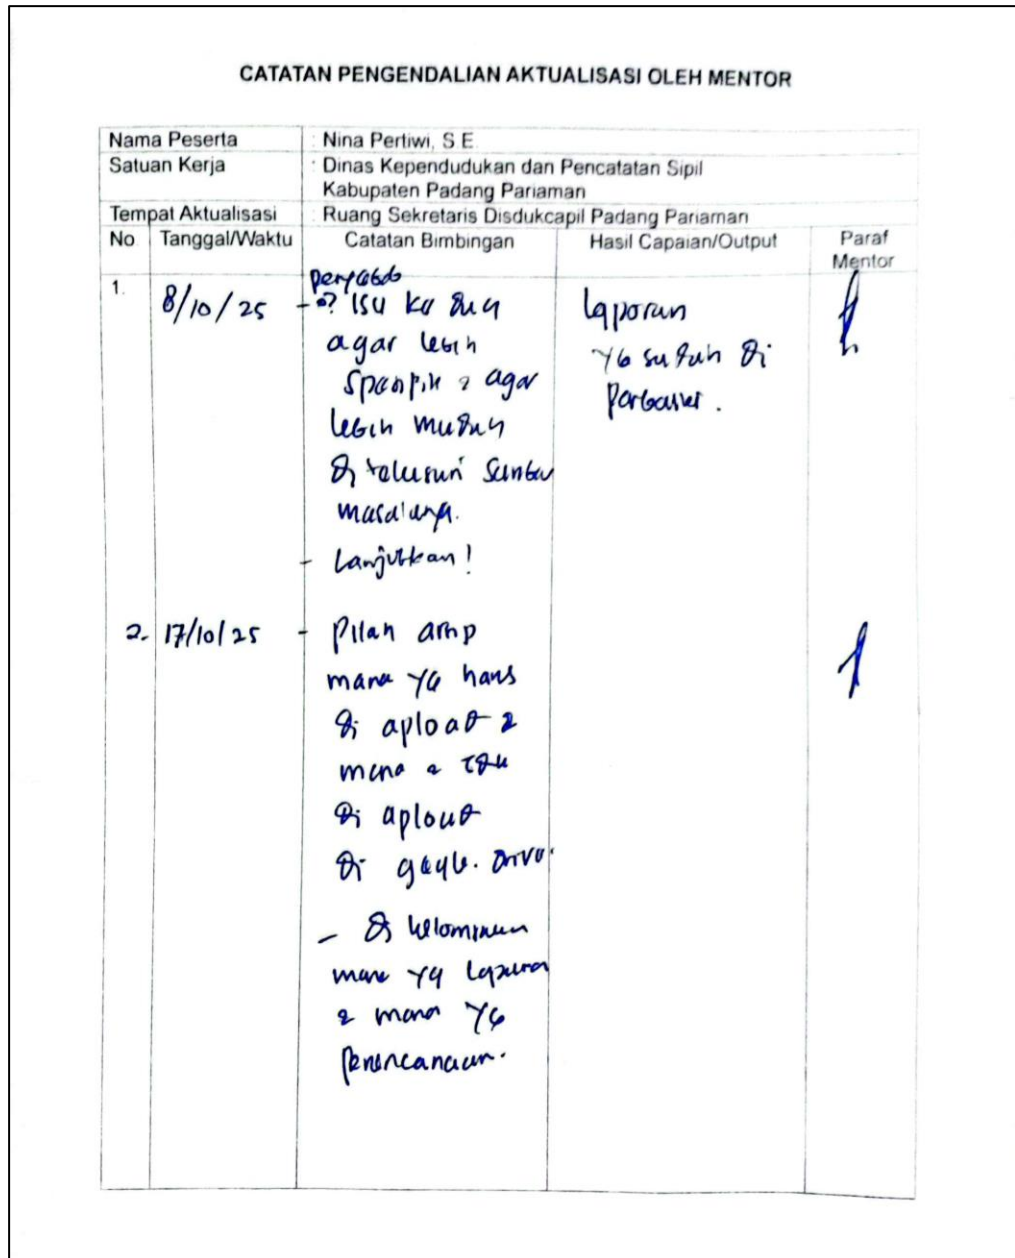 CATATAN PENGENDALIAN AKTUALISASI OLEH MENTOR
Nama Peserta : Nina Pertiwi, S.E.
Satuan Kerja : Dinas Kependudukan dan Pencatatan Sipil
Kabupaten Padang Pariaman
Tempat Aktualisasi : Ruang Sekretaris Disdukcapil Padang Pariaman
No Tanggal/Waktu Catatan Bimbingan Hasil Capaian/Output Paraf Mentor
1. 8/10/25 - isu laporan
agar lebih yg sudah di
agar
lebih mudah
di telusuri
masalanya.
- Lanjutkan!
2. 17/10/25 - Pilah
mana yg harus
di aploat
mana
di aploat
di
- di
mana yg
mana yg
perencanaan.